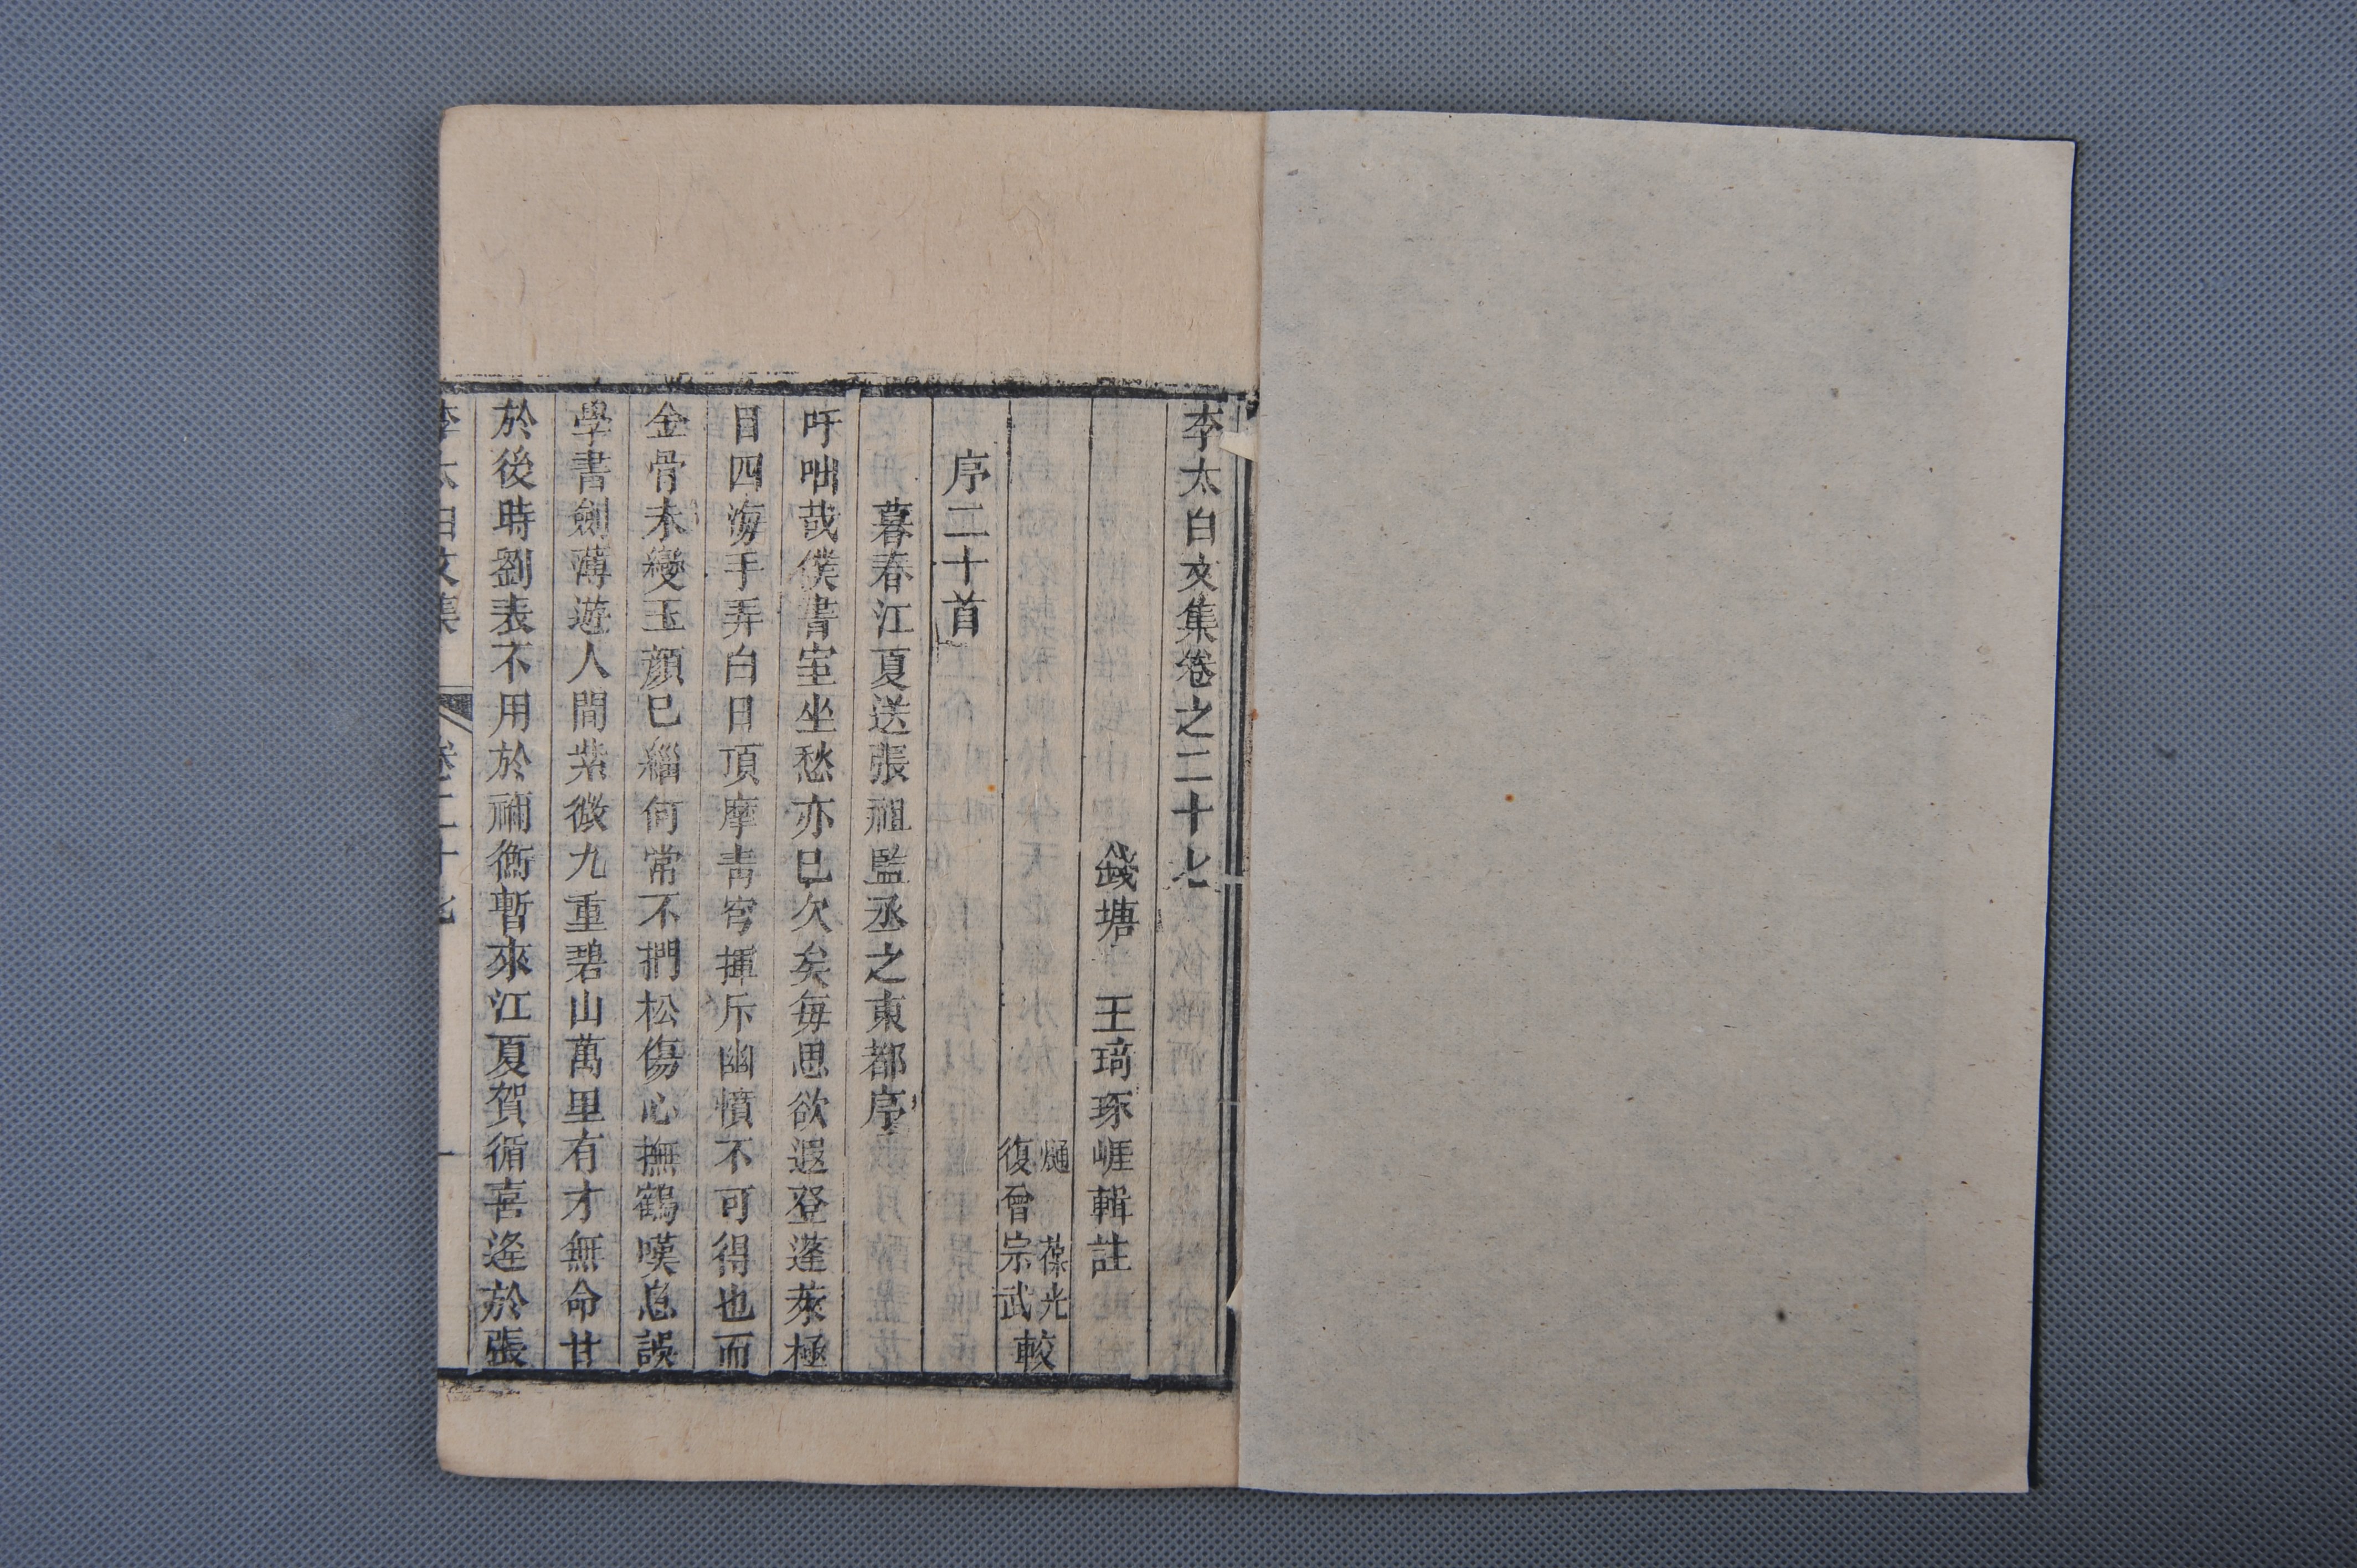 李太白文集卷之二十七
錢塘 王琦琢崖輯註
縋 葆光
復曾宗武 較
序二十首
暮春江夏送張祖監丞之東都序
吁咄哉僕書室坐愁亦已久矣每思欲遐登蓬萊極
目四海手弄白日頂摩青穹揮斥幽憤不可得也而
金骨未變玉顔已緇何常不捫松傷心撫鶴嘆息誤
學書劍薄遊人間紫微九重碧山萬里有才無命甘
於後時劉表不用於禰衡暫來江夏賀循喜逢於張
李太白文集 卷二十七 一